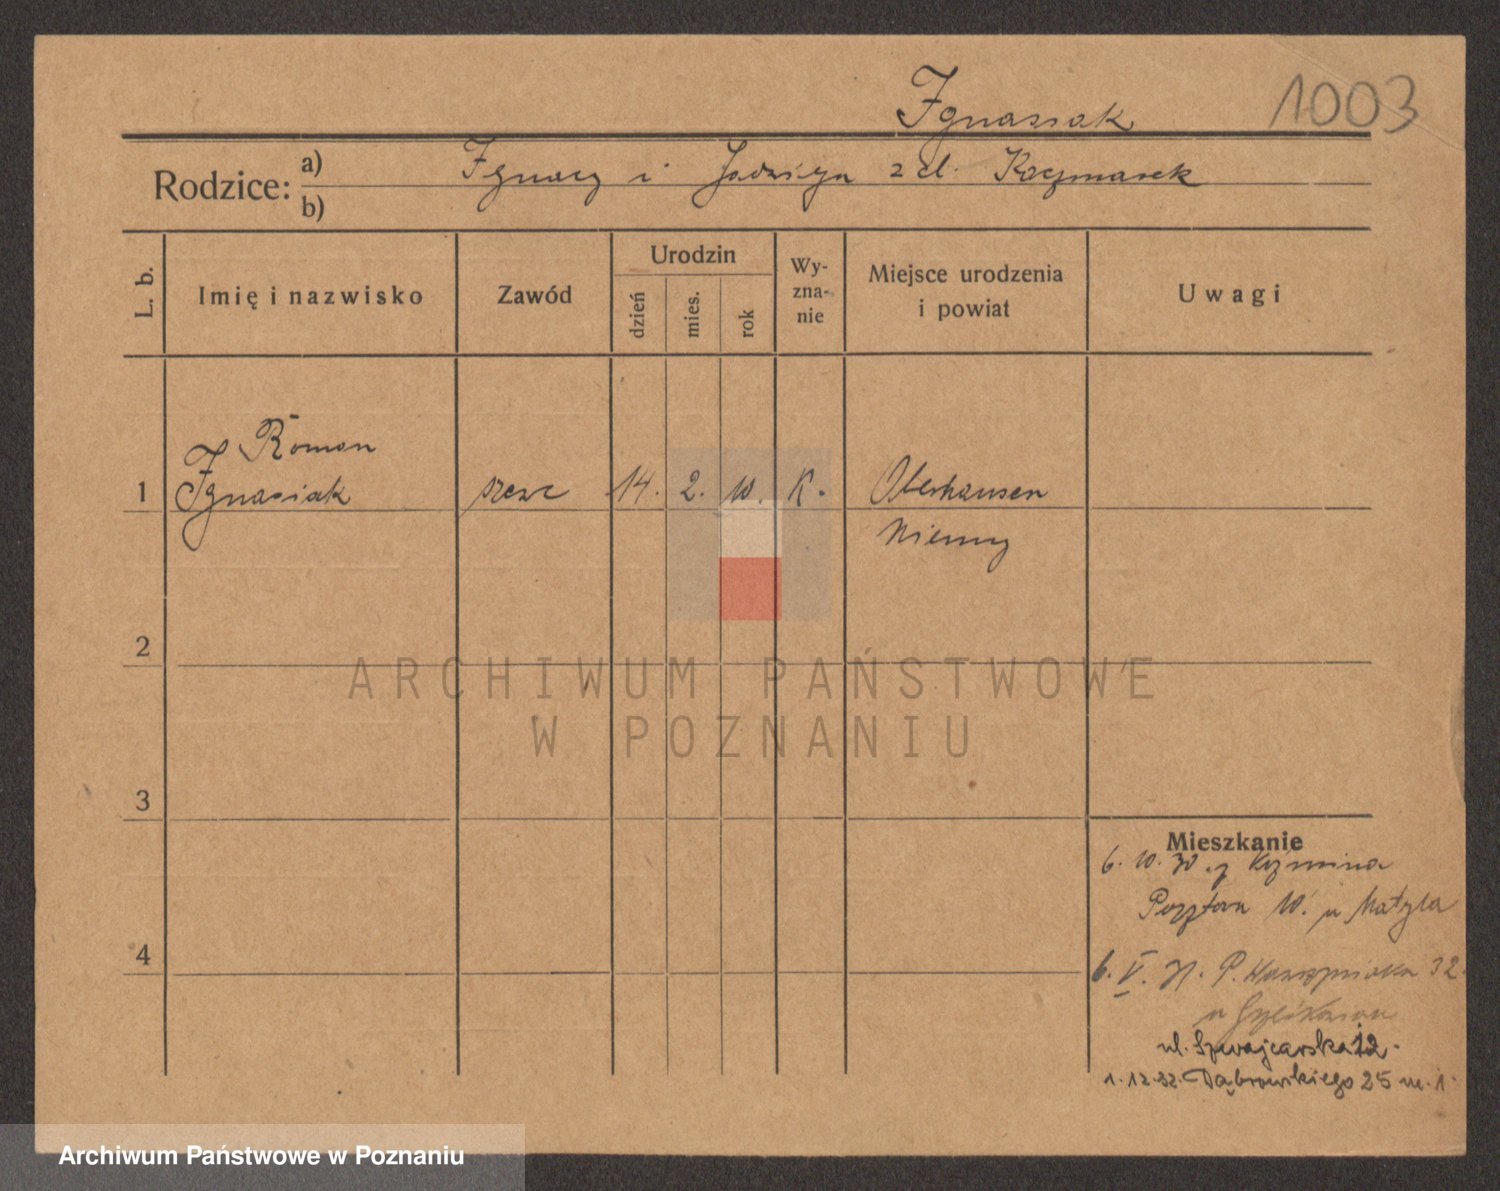 1003
Ignasiak
Rodzice: a) Ignacy i Jadwiga z d. Kaczmarek
b)
L. b.
Imię i nazwisko
Zawód
Urodzin
dzień
mies.
rok
Wy-
zna-
nie
Miejsce urodzenia
i powiat
Uwagi
Roman
1 Ignasiak szewc 14. 2. 10. K. Oberhausen
Niemcy
2
3
4
Mieszkanie
6. 10. 30. z Koźmina
10. u Matyla
6. V. 32
u
ul. Szwajcarska 12.
1.12.32. Dąbrowskiego 25 m. 1
ARCHIWUM PAŃSTWOWE
W POZNANIU
Archiwum Państwowe w Poznaniu